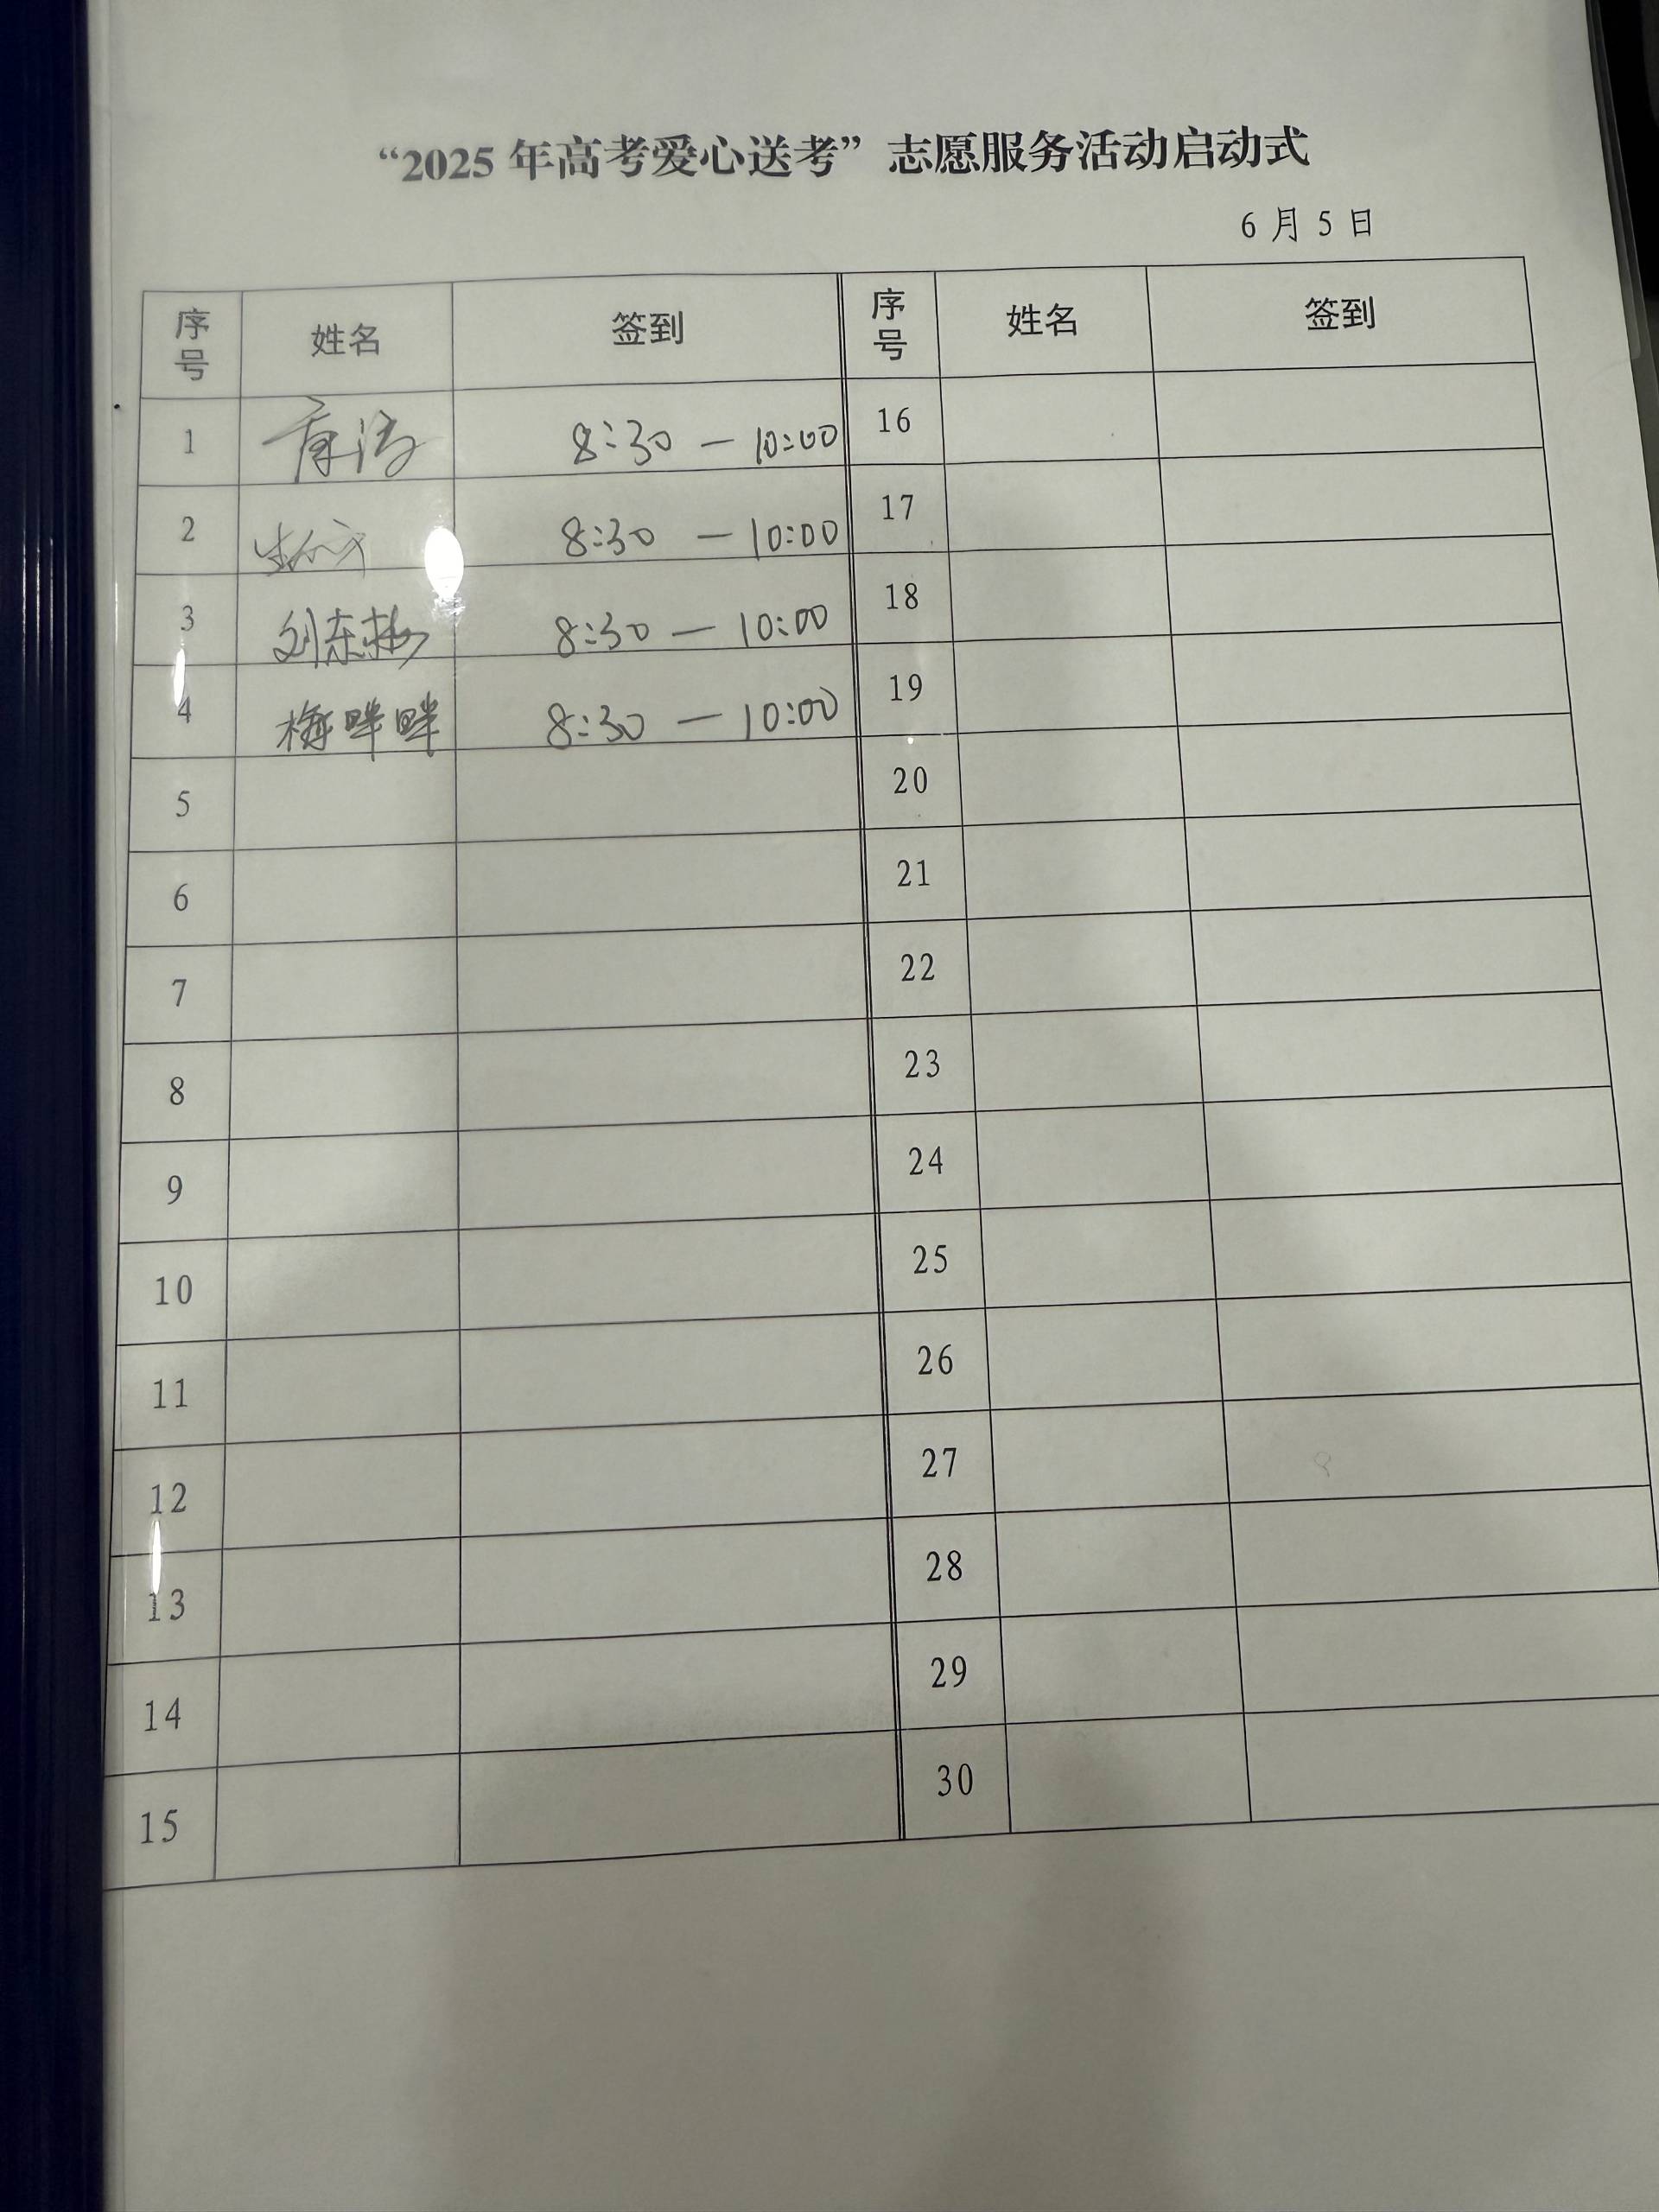 “2025 年高考爱心送考”志愿服务活动启动式
6 月 5 日
序号 姓名 签到 序号 姓名 签到
1 8:30 — 10:00 16
2 8:30 — 10:00 17
3 刘东梅 8:30 — 10:00 18
4 梅畔畔 8:30 — 10:00 19
5 20
6 21
7 22
8 23
9 24
10 25
11 26
12 27
13 28
14 29
15 30